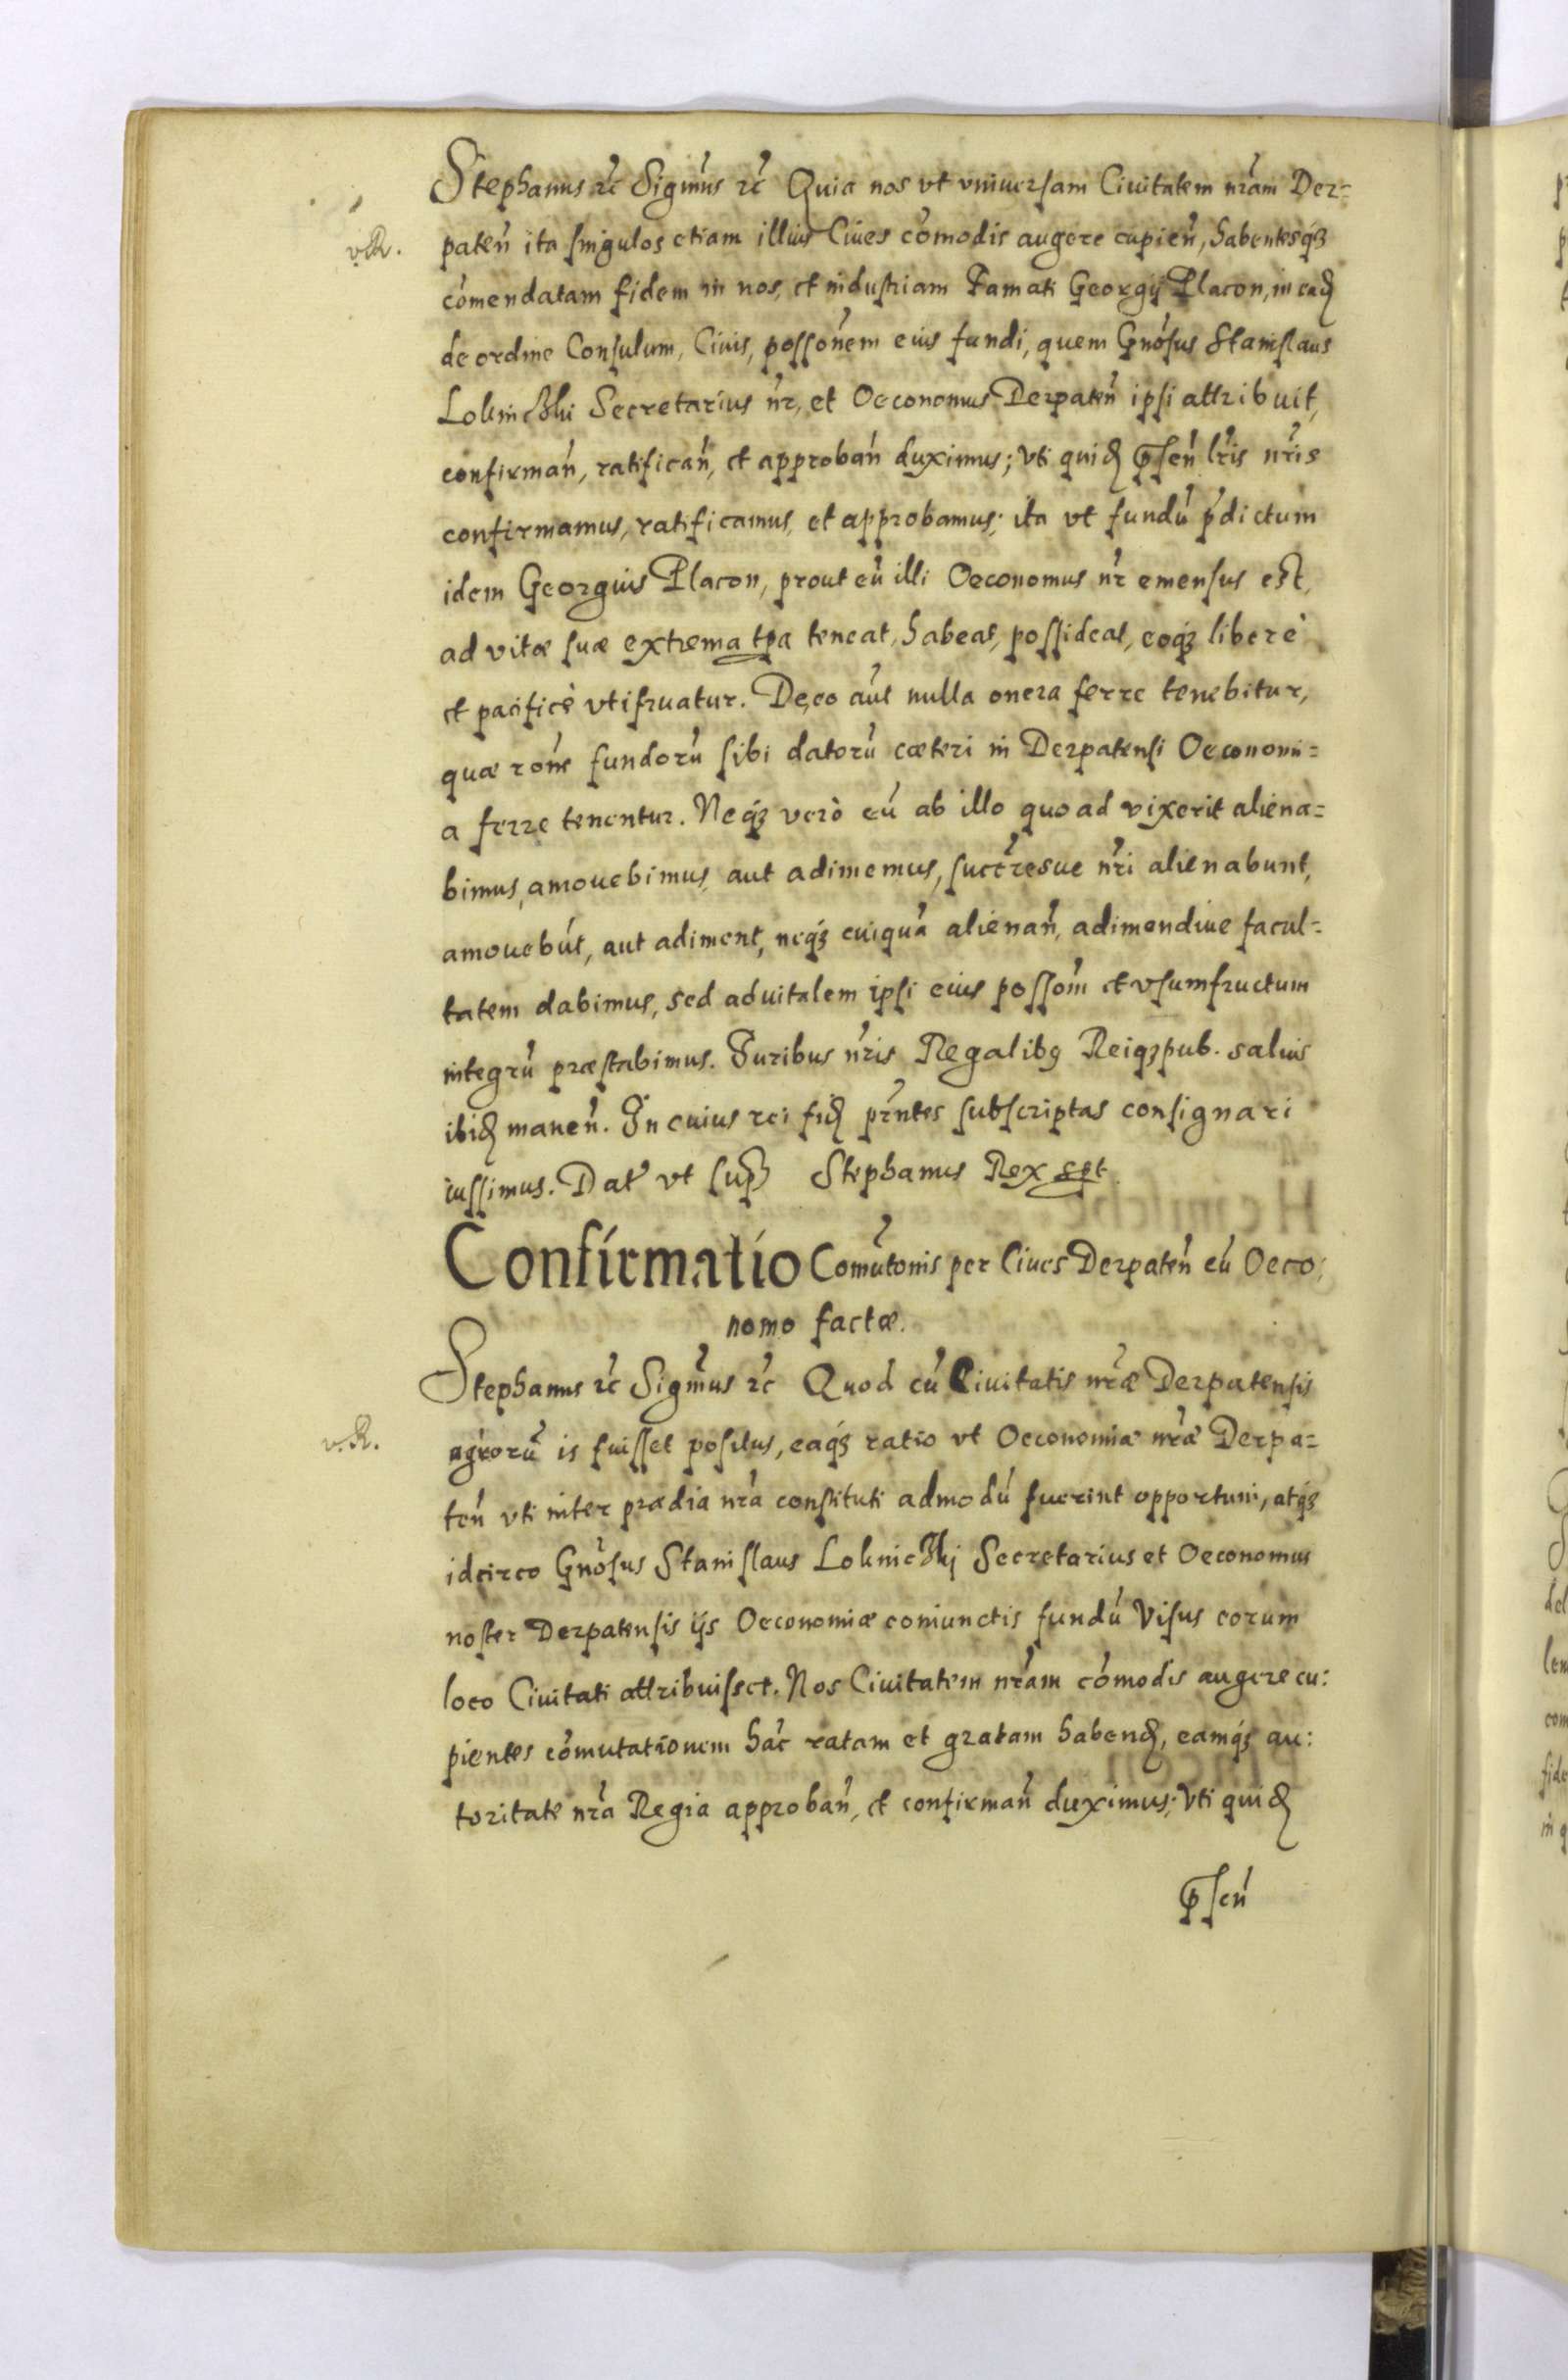 Stephanus etc̃ Sigm̃us etc̃ Quia nos vt vniuersam Ciuitatem nr̃am Der=
v.R.
pateñ ita singulos etiam illius Ciues cõmodis augere cupieñ, habentesq́ꝫ
cõmendatam fidem in nos, et industriam Famati Georgij Placon, in eaď
de ordine Consulum, Ciuis, possoñem eius fundi, quem Gnõsus Stanislaus
Secretarius nr̃, et Oeconomus Derpateñ ipsi attribuit,
confirmañ, ratificañ, et approbañ duximus; Vti quiď p̃señ lr̃is nr̃is
confirmamus, ratificamus, et approbamus; ita vt fundũ p̃dictum
idem Georgius Placon, prout eũ illi Oeconomus nr̃ emensus est,
ad vitæ suæ extrema tp̃a teneat, habeat, possideat, eoq́ꝫ liberè
et pacificè vtifruatur. De eo aũt nulla onera ferre tenebitur,
quæ rõne fundorũ sibi datorũ cæteri in Derpatensi Oeconomi=
a ferre tenentur. Neq́ꝫ verò eũ ab illo quoad vixerit aliena=
bimus, amouebimus, aut adimemus, succr̃esue nr̃i alienabunt,
amouebũt, aut adiment, neq́ꝫ cuiquã alienañ, adimendiue facul=
tatem dabimus, sed aduitalem ipsi eius possom̃ et vsumfructum
integrũ præstabimus. Iuribus nr̃is Regalibꝯ Reiqꝫpub. saluis
ibiď maneñ. In cuius rei fiď pr̃ntes subscriptas consignari
iussimus. Dat̃ vt sup̃ Stephanus Rex sp̃t.
Confirmatio Comũtonis per Ciues Derpateñ cũ Oeco:
nomo factæ.
Stephanus etc̃ Sigm̃us etc̃ Quod cũ Ciuitatis nr̃æ Derpatensis
v.R.
agrorũ is fuisset positus, eaq́ꝫ ratio vt Oeconomiæ nr̃æ Derpa=
teñ vti inter prædia nr̃a constituti admodũ fuerint opportuni, atq́ꝫ
idcirco Gnõsus Stanislaus Secretarius et Oeconomus
noster Derpatensis ijs Oeconomiæ coniunctis fundũ Visus eorum
loco Ciuitati attribuisset. Nos Ciuitatem nr̃am cõmodis augere cu:
pientes cõmutationem hãc ratam et gratam habenď, eamq́ꝫ au:
toritate nr̃a Regia approbañ, et confirmañ duximus; Vti quiď
p̃señ